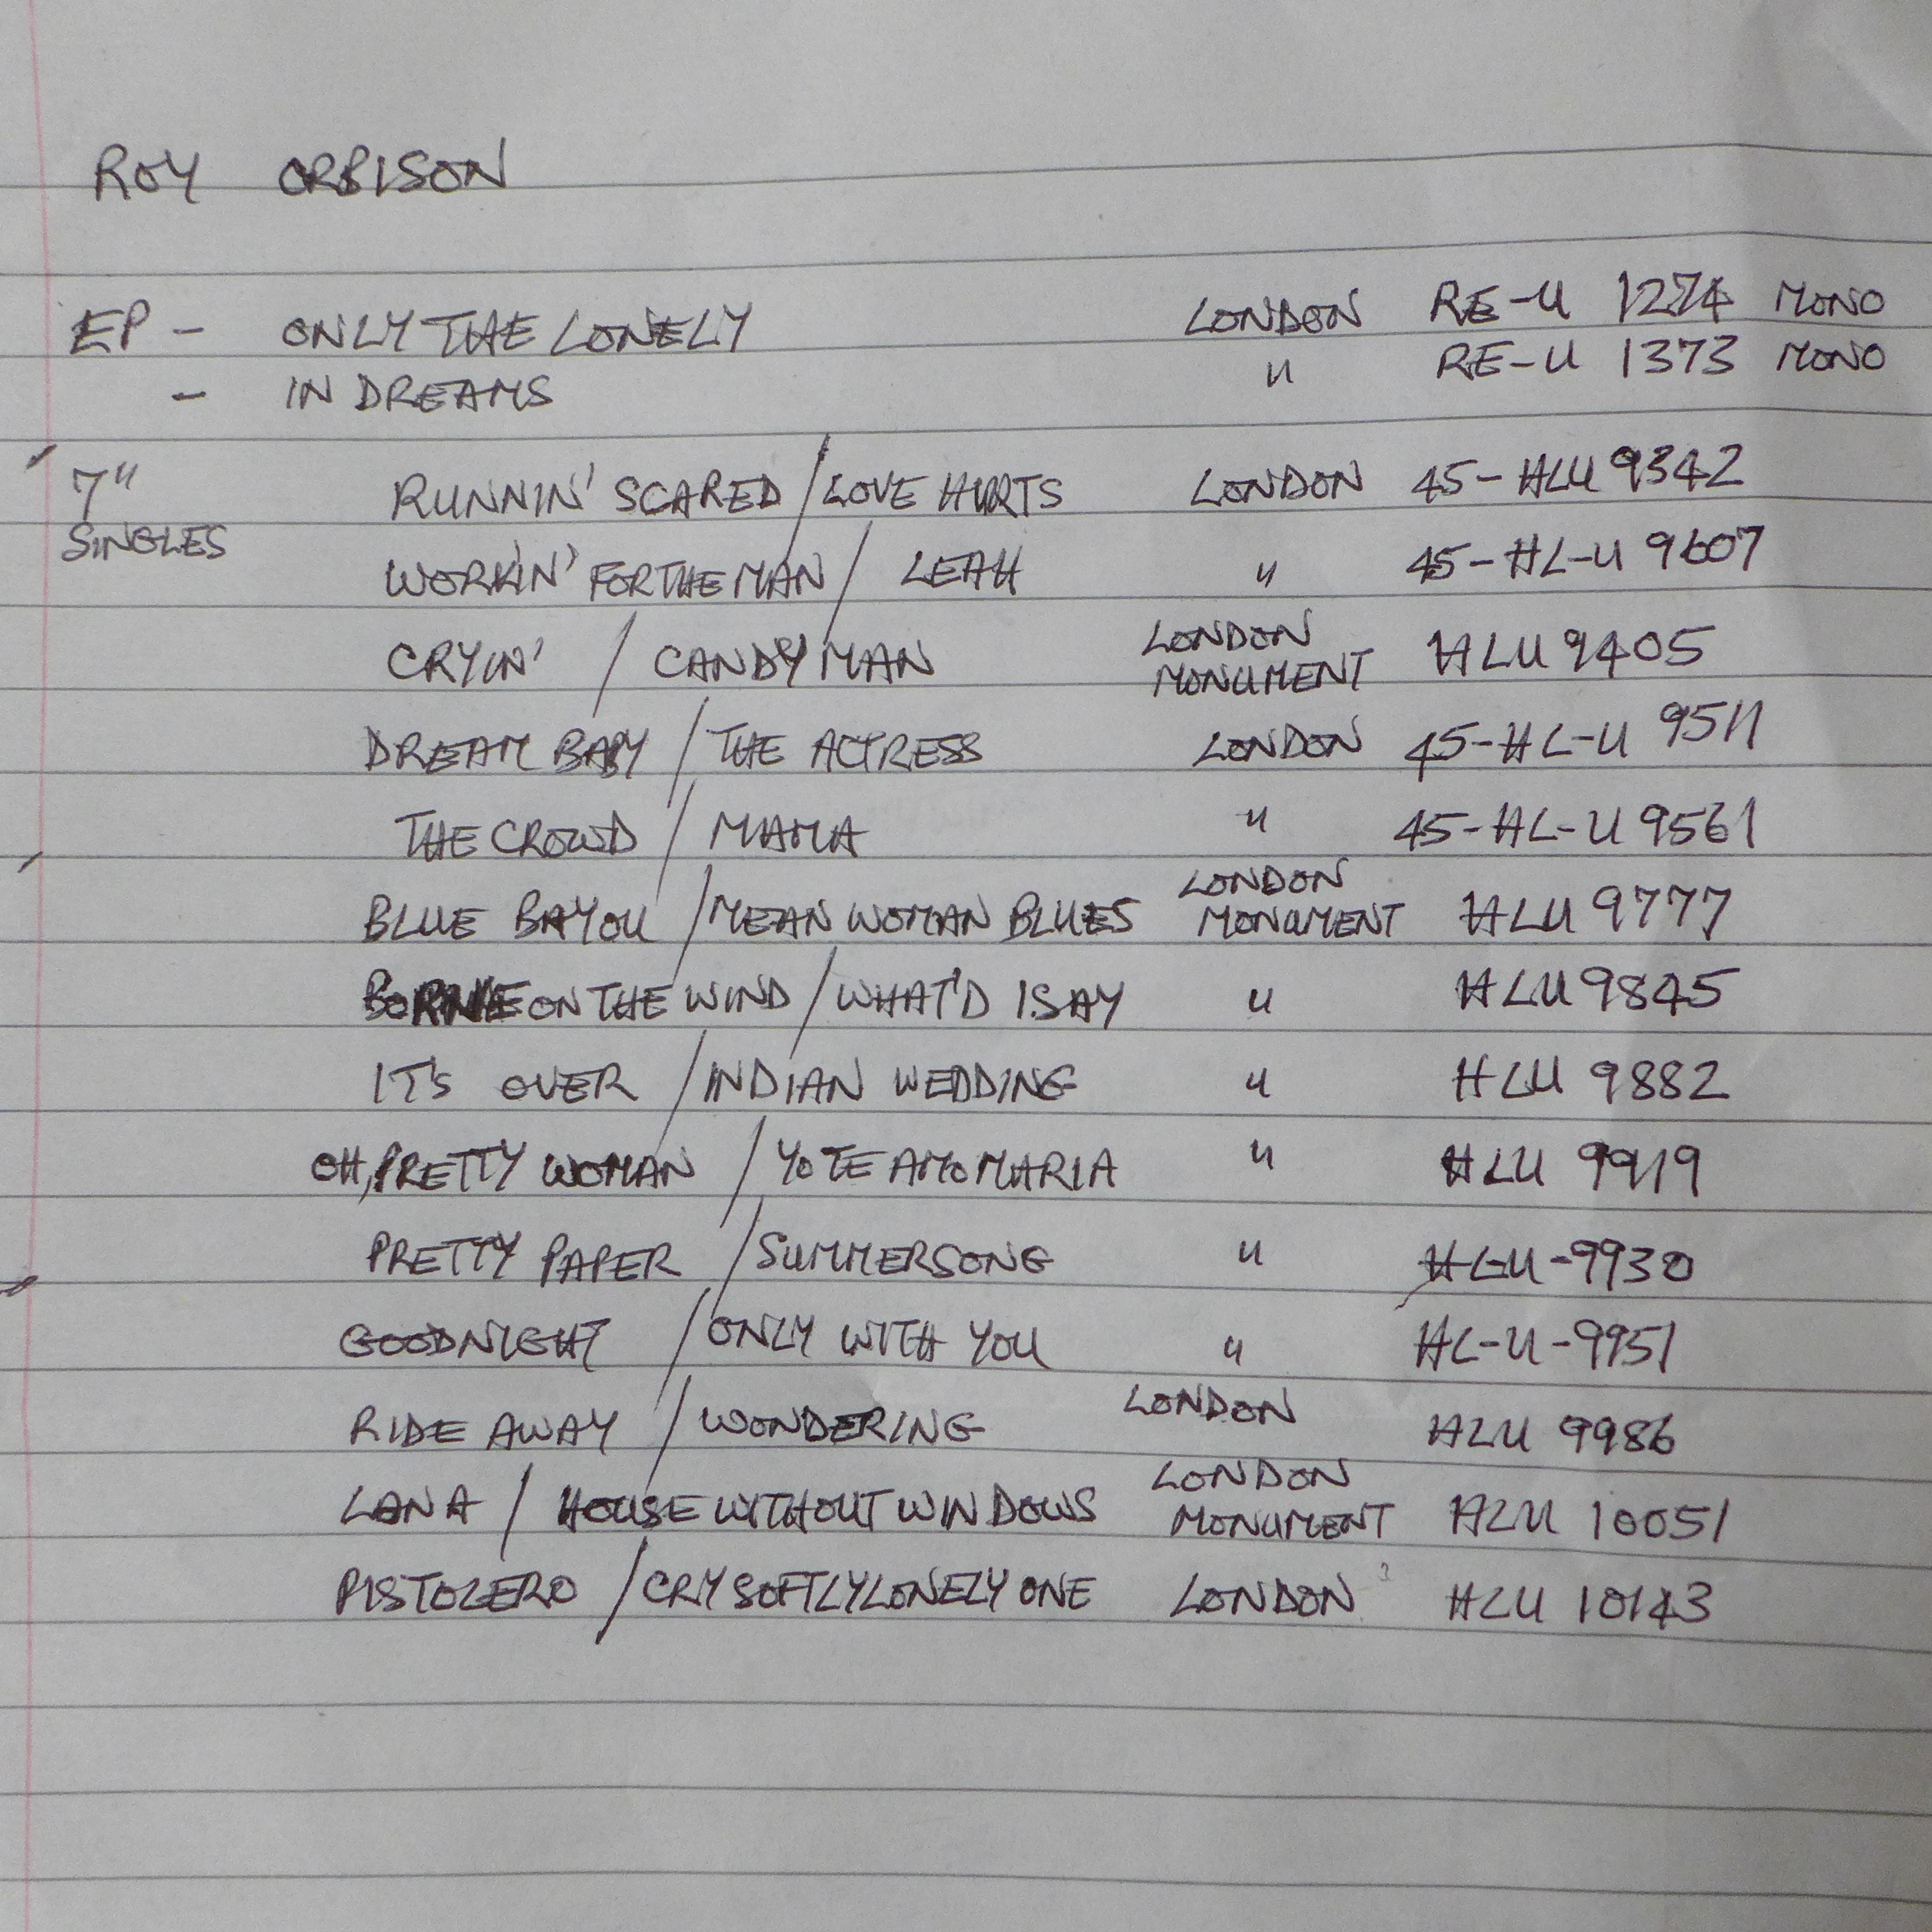 ROY ORBISON
EP - ONLY THE LONELY LONDON RE-U 1274 MONO
- IN DREAMS " RE-U 1373 MONO
7" SINGLES
RUNNIN' SCARED / LOVE HURTS LONDON 45-HLU 9342
WORKIN' FOR THE MAN / LEAH " 45-HL-U 9607
CRYIN' / CANDY MAN LONDON MONUMENT HLU 9405
DREAM BABY / THE ACTRESS LONDON 45-HL-U 9511
THE CROWD / MAMA " 45-HL-U 9561
BLUE BAYOU / MEAN WOMAN BLUES LONDON MONUMENT HLU 9777
BORNE ON THE WIND / WHAT'D I SAY " HLU 9845
IT'S OVER / INDIAN WEDDING " HLU 9882
OH, PRETTY WOMAN / YO TE AMO MARIA " HLU 9919
PRETTY PAPER / SUMMERSONG " HLU-9930
GOODNIGHT / ONLY WITH YOU " HL-U-9951
RIDE AWAY / WONDERING LONDON HLU 9986
LANA / HOUSE WITHOUT WINDOWS LONDON MONUMENT HLU 10051
PISTOLERO / CRY SOFTLY LONELY ONE LONDON HLU 10143